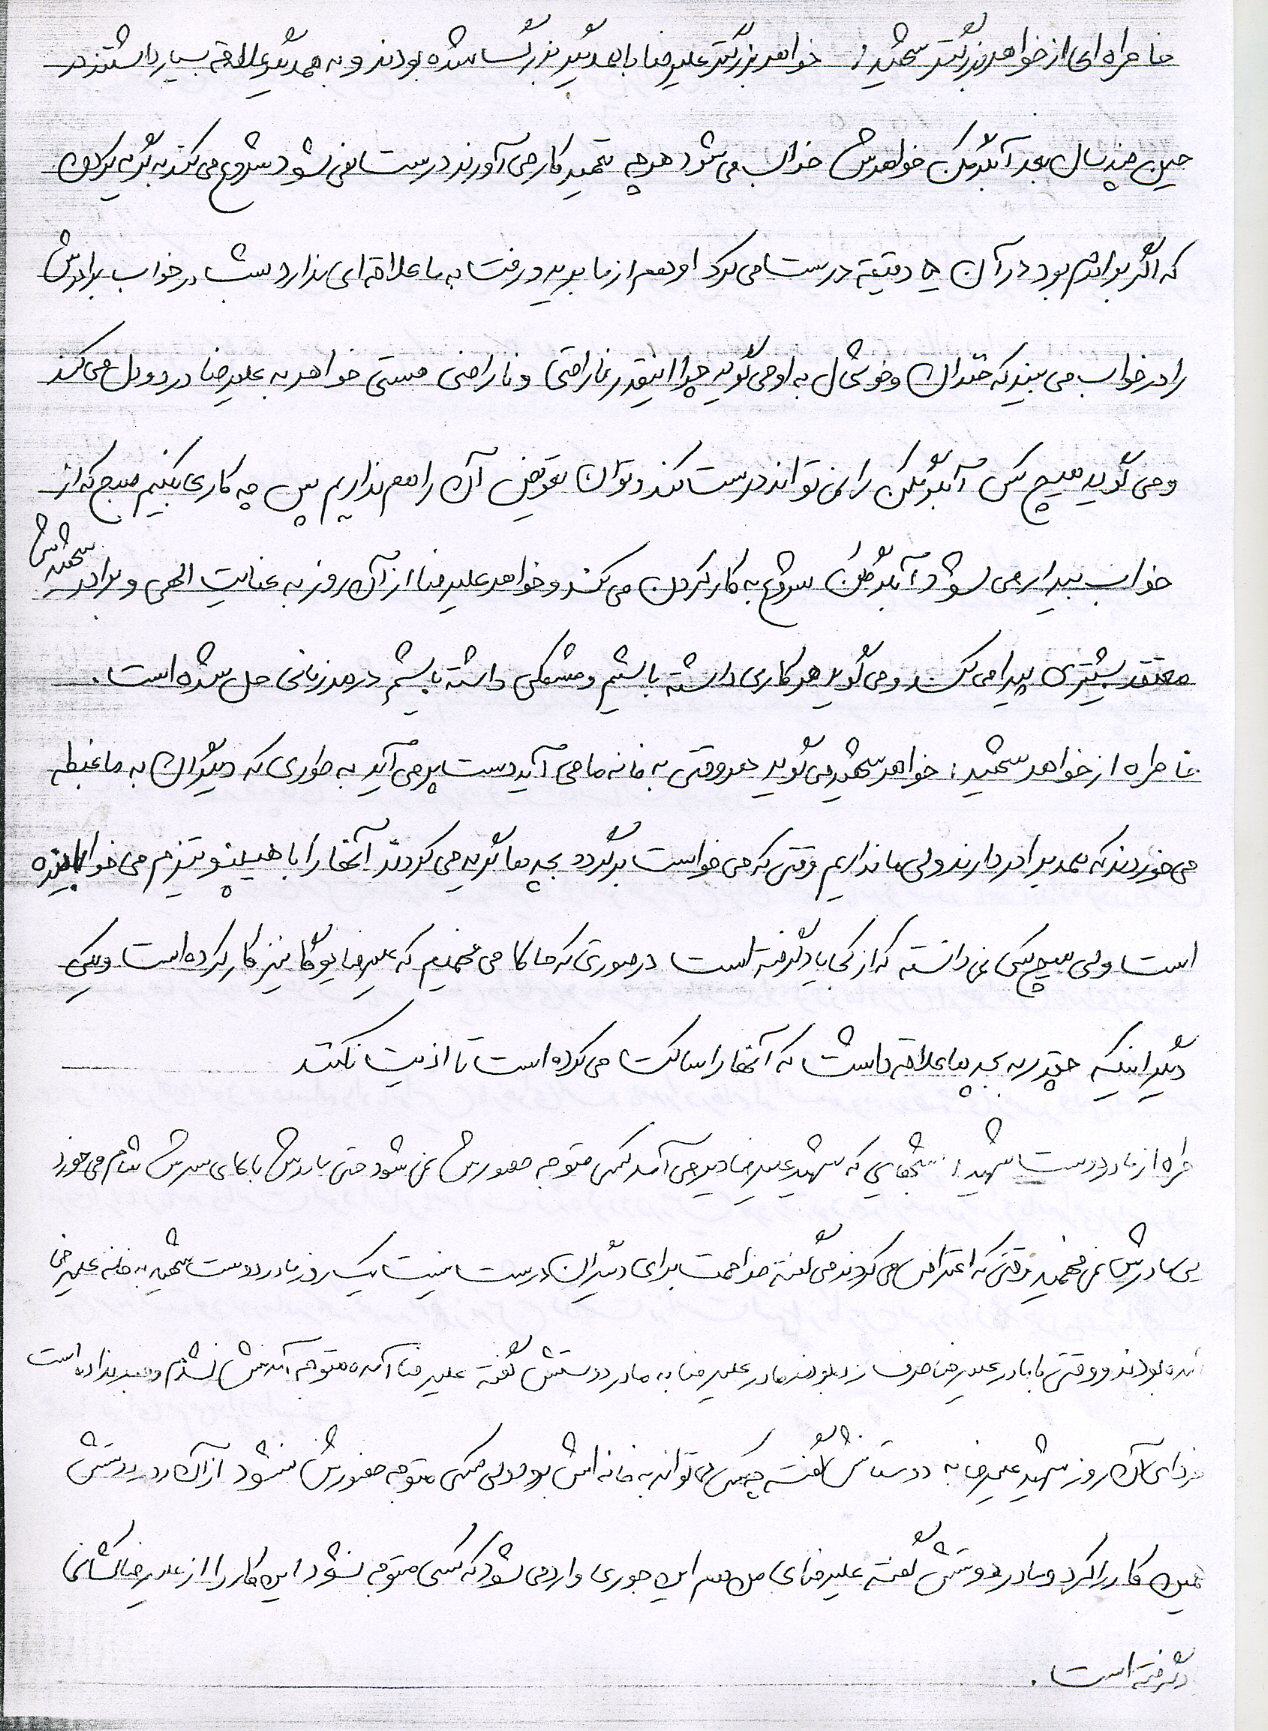 خاطره ای از خواهر بزرگتر شهید: خواهر بزرگتر علیرضا با همدیگر بزرگ شده بودند و به همدیگر علاقه بسیار داشتند در
حین چند سال بعد آبگرمکن خواهرش خراب می شود هرچه تعمیرکار می آورند درست نمی شود شروع می کند به گریه کردن
که اگر برادرم بود در آن ۵ دقیقه درست می کرد او هم از ما برید و رفت به ما علاقه ای ندارد شب در خواب برادرش
را در خواب می بیند که خندان و خوشحال به او می گوید چرا اینقدر ناراحتی و ناراضی هستی خواهر به علیرضا درد و دل می کند
و می گوید هیچ کس آبگرمکن را نمی تواند درست کند و توان تعویض آن را هم نداریم پس چه کاری بکنیم صبح که از
خواب بیدار می شود آبگرمکن شروع به کار کردن می کند و خواهر علیرضا از آن روز به عنایت الهی و برادر شهیدش
معتقد بیشتری پیدا می کند و می گوید هر کاری داشته باشیم و مشکلی داشته باشیم در هر زمانی حل شده است.
خاطره از خواهر شهید: خواهر شهید می گوید هر وقتی به خانه ما می آید دست پر می آید به طوری که دیگران به ما غبطه
می خوردند که همه برادر دارند ولی ما نداریم وقتی که می خواست برگردد بچه ها گریه می کردند آنها را با هیپنوتیزم می خوابانیده
است ولی هیچ کس نمی دانسته که از کجا یاد گرفته است در صورتی که حالا می فهمیم که علیرضا یوگا نیز کار کرده است و یکی
دیگر اینکه چقدر به بچه ها علاقه داشت که آنها را ساکت می کرده است تا اذیت نکنند
طره از مادر دوست شهید: شبهایی که شهید علیرضا دیر می آمد کسی متوجه حضورش نمی شود حتی بارش با بالای سرش شام می خورد
لی مادرش نمی فهمید وقتی که اعتراض می کردند می گفته مزاحمت برای دیگران درست نیست یک روز مادر دوست شهید به خانه علیرضا
آمده بودند و وقتی با مادر علیرضا حرف زده بودند مادر علیرضا به مادر دوستش گفته علیرضا آمده متوجه آمدنش نشدم و صدا نداده است
فردای آن روز شهید علیرضا به دوستانش گفته چه کسی می تواند به خانه اش برود ولی کسی متوجه حضورش نشود از آن رد دوستش
همین کار را کرد و مادر دوستش گفته علیرضای من هم این جوری وارد می شود که کسی متوجه نشود این کار را از علیرضا کشانی
گرفته است.